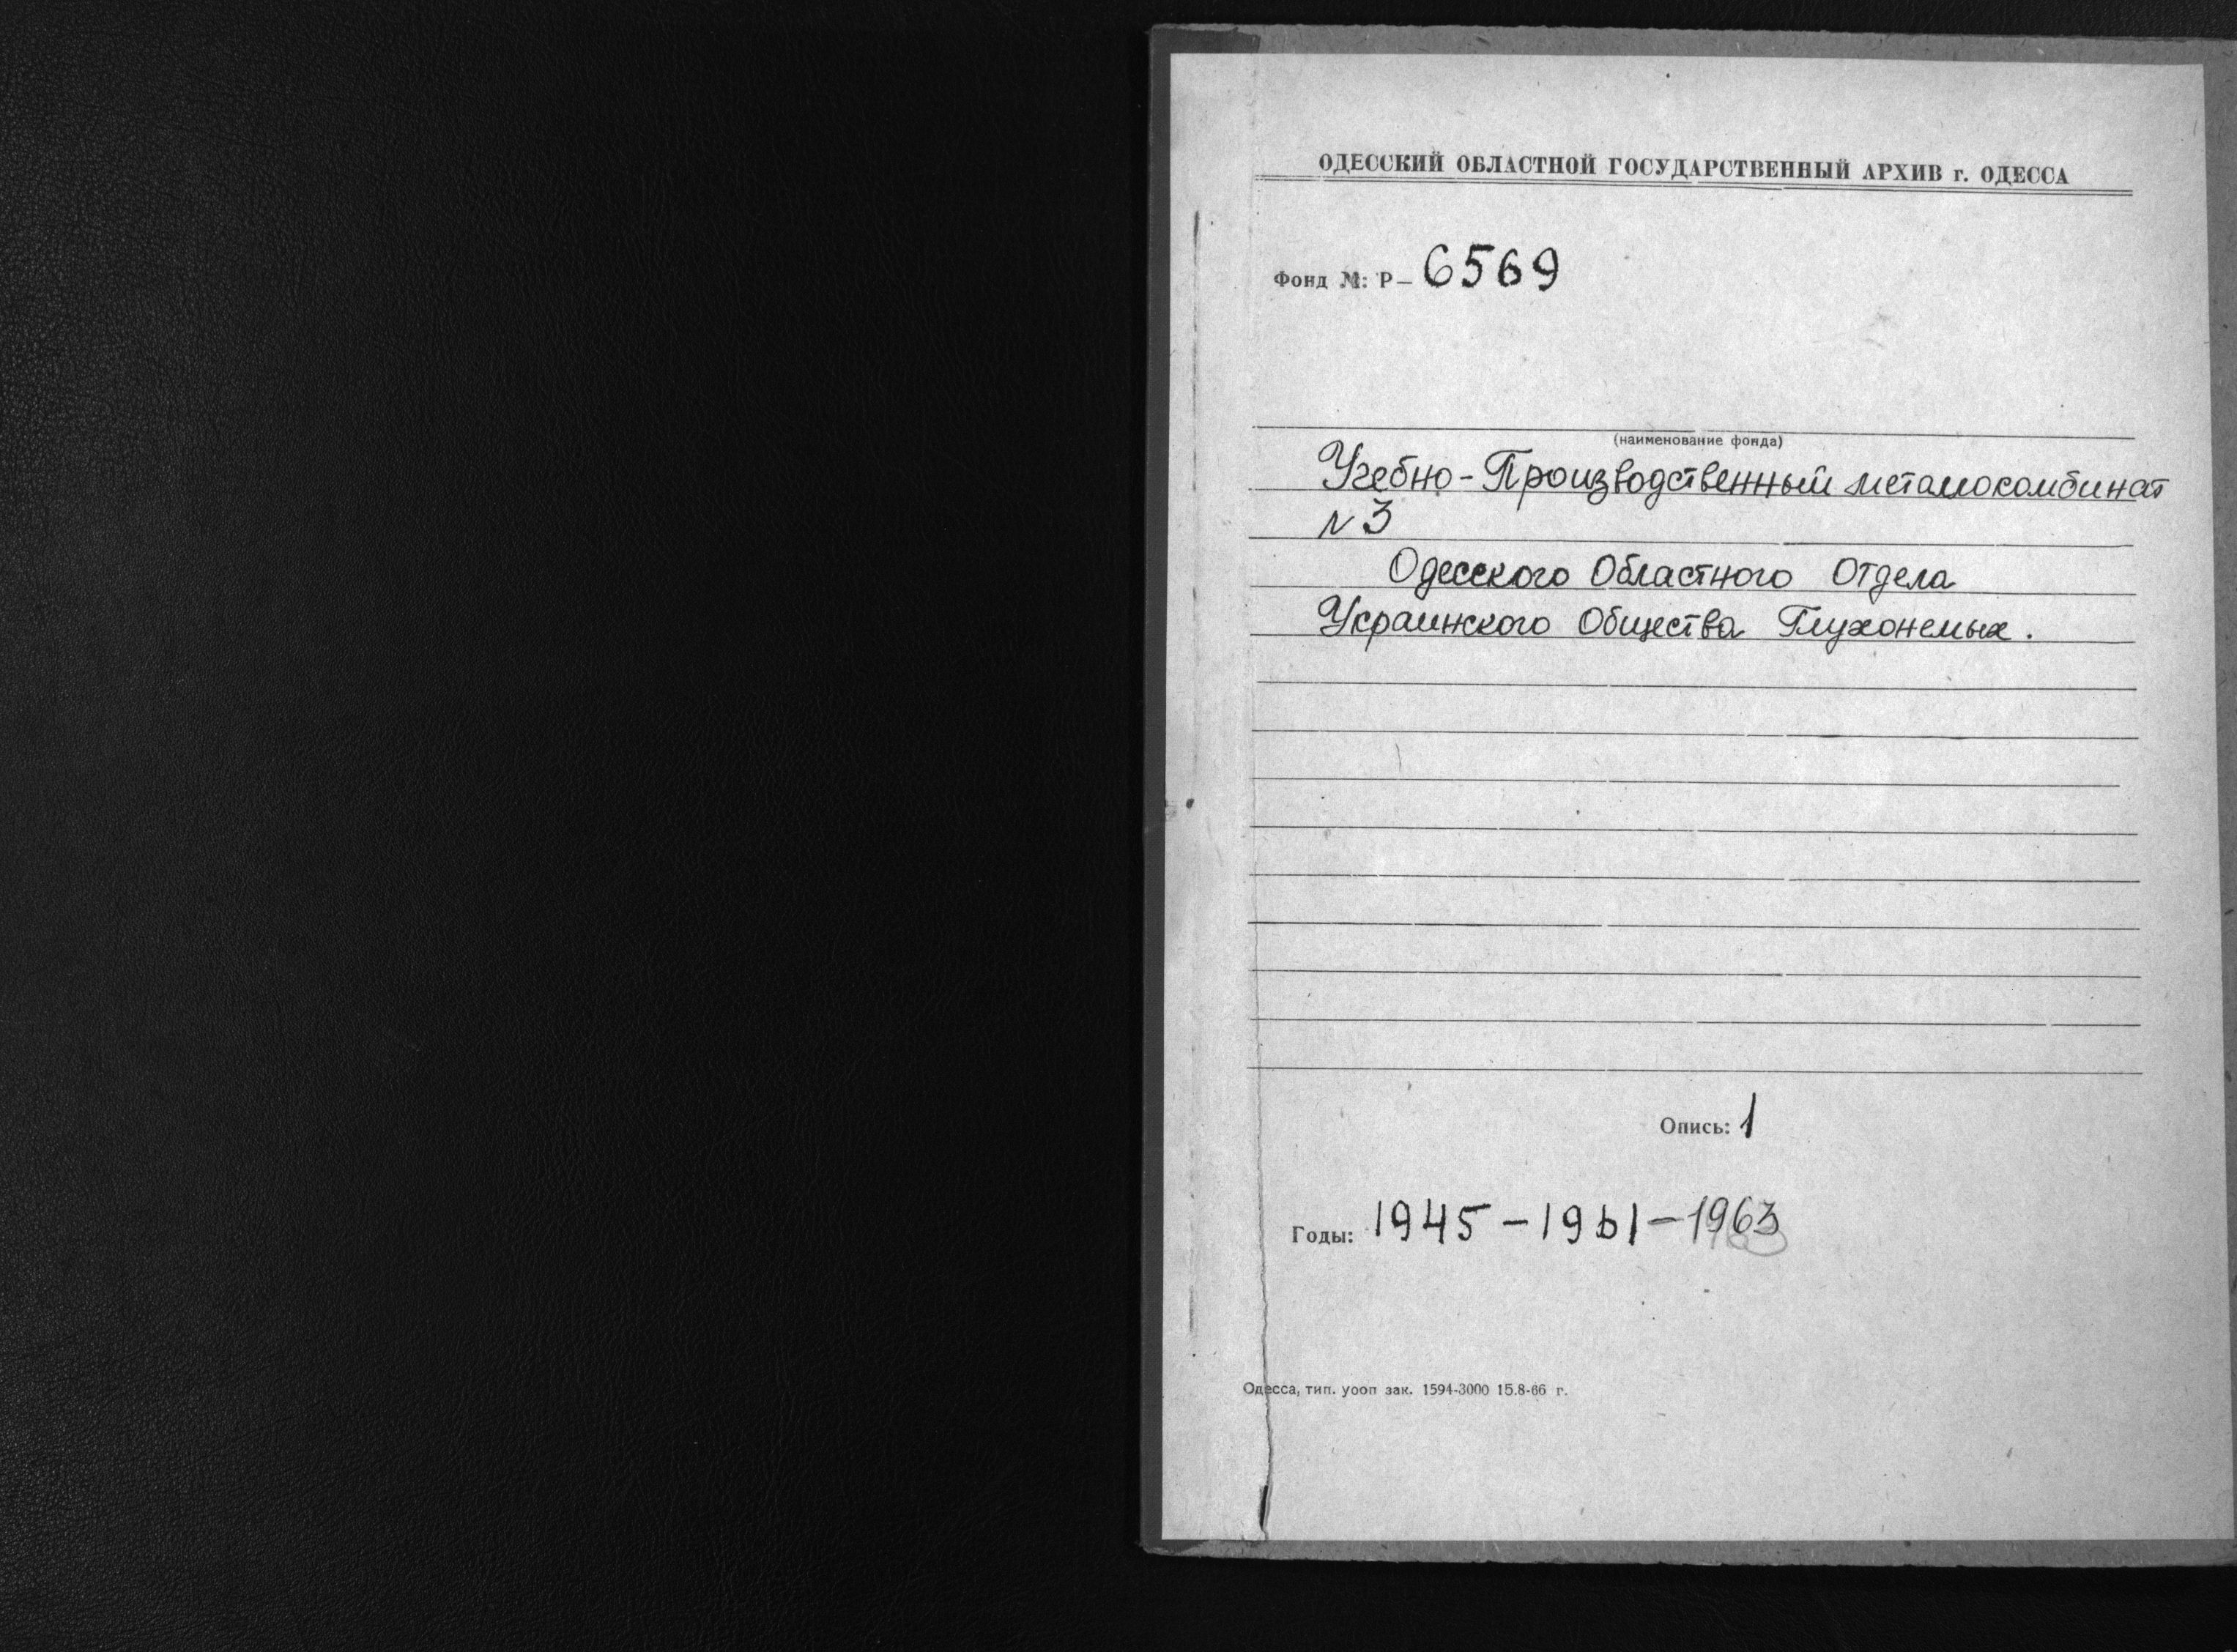 ОДЕССКИЙ ОБЛАСТНОЙ ГОСУДАРСТВЕННЫЙ АРХИВ г. ОДЕССА
Фонд №: Р— 6569
(наименование фонда)
Учебно-Производственный металлокомбинат
№ 3
Одесского Областного Отдела
Украинского Общества Глухонемых.
Опись: 1
Годы: 1945 – 1961 – 1963
Одесса, тип. уооп зак. 1594-3000 15.8-66 г.